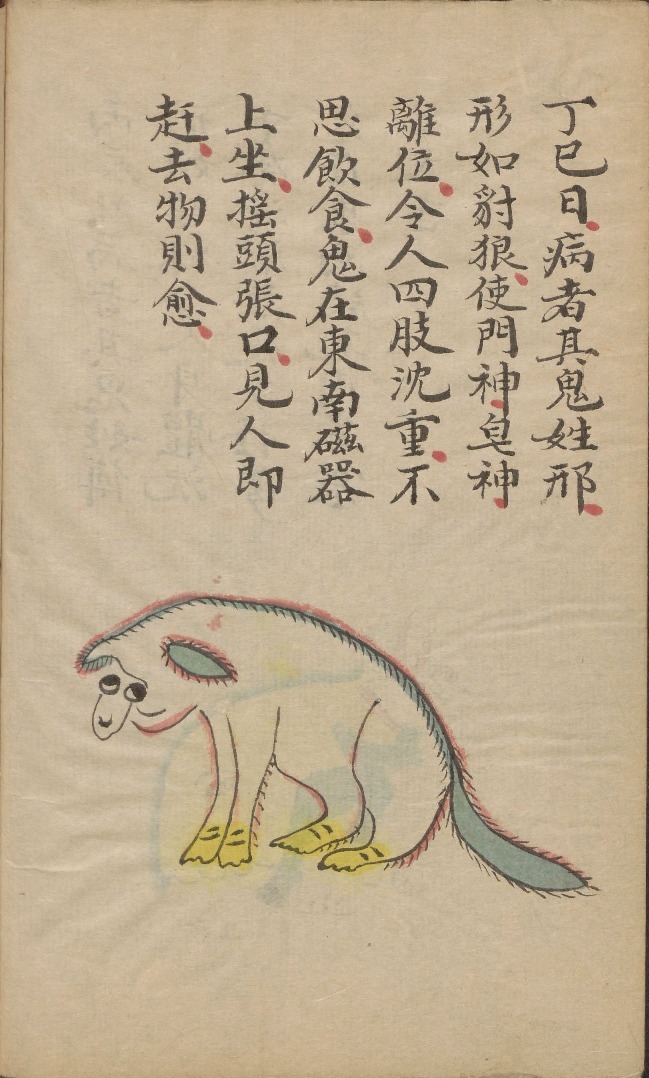 丁巳日病者其鬼姓邢
形如豺狼使門神皂神
離位令人四肢沈重不
思飲食鬼在東南磁器
上坐搖頭張口見人即
赶去物則愈